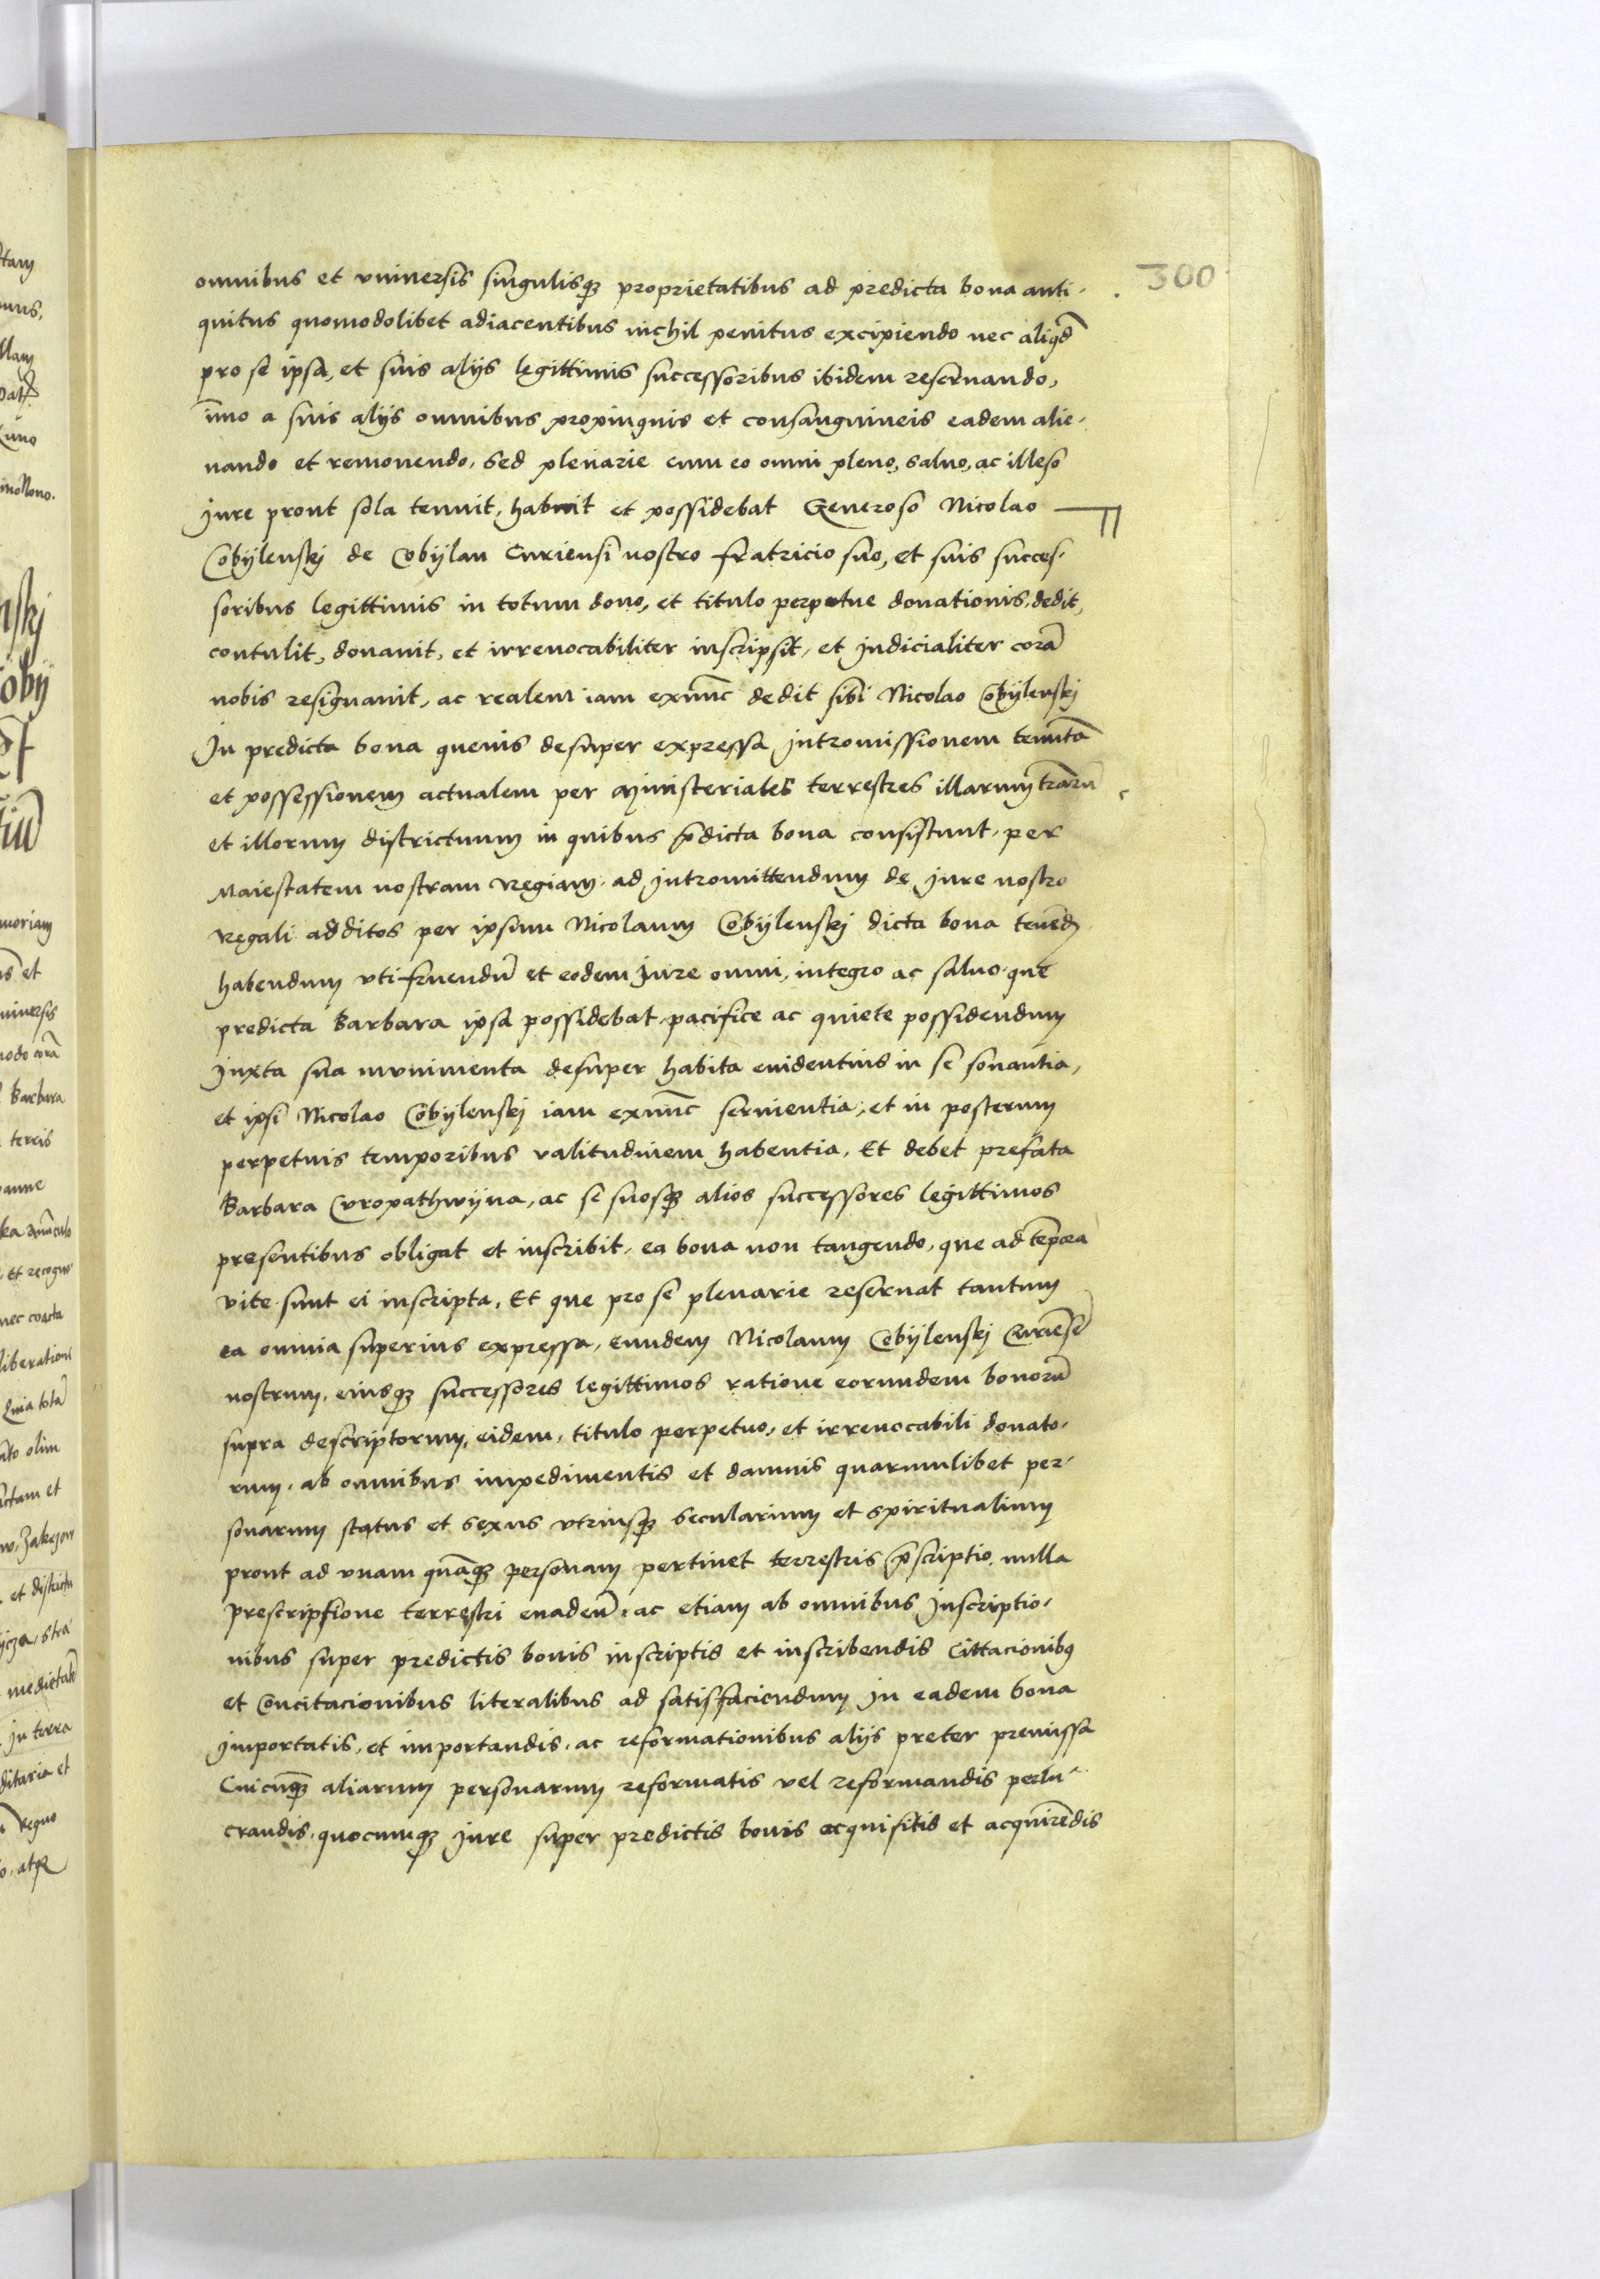 300
omnibus et vniuersis singulisq3 proprietatibus ad predicta bona anti-
quitus quomodolibet adiacentibus nichil penitus excipiendo nec aliqd̃
pro se ipsa, et suis alijs legittimis successoribus ibidem reseruando,
ĩmo a suis alijs omnibus propinquis et consanguineis eadem alie-
nando et remouendo, Sed plenarie cum eo omni pleno, saluo, ac illeso
Jure prout sola tenuit, habuit et possidebat Generoso Nicolao
Cobÿlenskj de Cobÿlan Curiensi nostro fratricio suo, et suis succes-
soribus legittimis in totum dono, et titulo perpetue donationis, dedit,
contulit, donauit, et irreuocabiliter inscripsit, et Judicialiter corã
nobis resignauit, ac realem iam exnũc dedit sibi Nicolao Cobÿlenskj
Jn predicta bona queuis desuper expressa Jntromissionem tenutã
et possessionem actualem per Ministeriales terrestres illarum trarũ
et illorum districtuum in quibus p̃dicta bona consistunt, per
Maiestatem nostram Regiam, ad Jntromittendum de Jure nostro
Regali additos per ipsum Nicolaum Cobÿlenskj dicta bona tenẽd
habendum vtifruendũ et eodem Jure omni, integro ac saluo, que
predicta Barbara ipsa possidebat, pacifice ac quiete possidendum
Juxta sua munimenta desuper habita euidentius in se sonantia,
et ipsi Nicolao Cobÿlenskj iam exnũc seruientia, et in posterum
perpetuis temporibus valitudinem habentia, Et debet prefata
Barbara Cropathwÿna, ac se suosq3 alios successores legittimos
presentibus obligat et inscribit, ea bona non tangendo, que ad tẽpora
vite sunt ei inscripta, Et que pro se plenarie reseruat tantum
ea omnia superius expressa, eundem Nicolaum Cobÿlenskj Curiẽsẽ
nostrum, eiusq3 successores legittimos ratione eorundem bonorũ
supra descriptorum, eidem, titulo perpetuo, et irreuocabili donato-
rum, ab omnibus impedimentis et damnis quarumlibet per-
sonarum status et sexus vtriusq3 secularium et spiritualium
prout ad vnam quãq3 personam pertinet terrestris p̃scriptio, nulla
prescripsione terrestri euadeñ, ac etiam ab omnibus Jnscriptio-
nibus super predictis bonis inscriptis et inscribendis Cittacionibꝰ
et Concitacionibus literalibus ad satisfaciendum Jn eadem bona
Jmportatis, et importandis, ac reformationibus alijs preter premissa
Cuicũq3 aliarum personarum reformatis vel reformandis perlu-
crandis, quocumq3 Jure super predictis bonis acquisitis et acquirẽdis